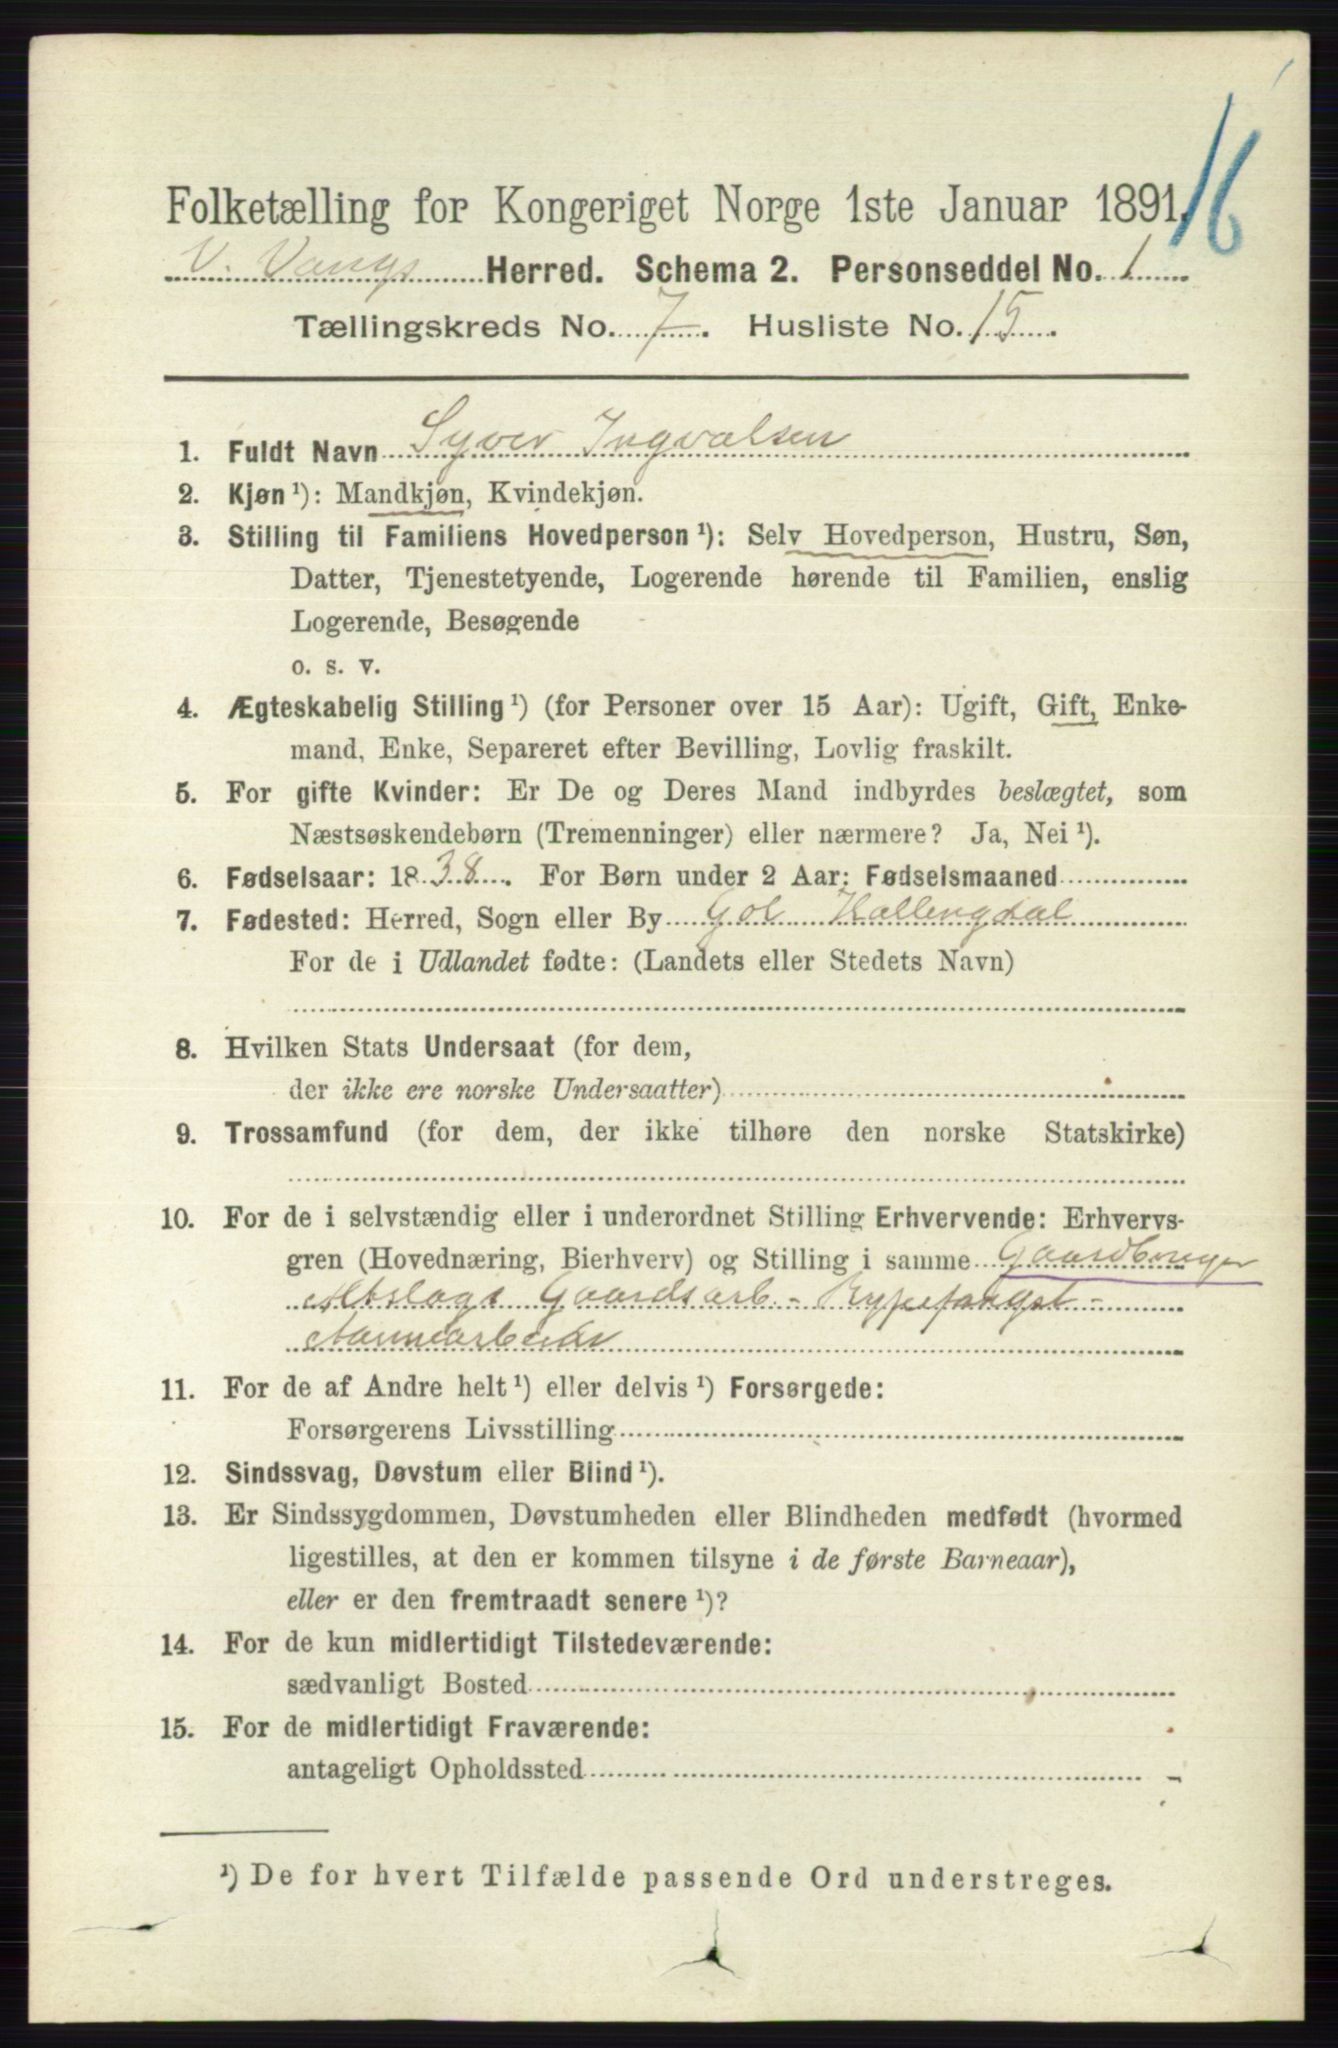 16
Folketælling for Kongeriget Norge 1ste Januar 1891.
V. Vangs Herred. Schema 2. Personseddel No. 1
Tællingskreds No. 7. Husliste No. 15.
1. Fuldt Navn Syver Ingvalsen
2. Kjøn ¹): Mandkjøn, Kvindekjøn.
3. Stilling til Familiens Hovedperson ¹): Selv Hovedperson, Hustru, Søn,
Datter, Tjenestetyende, Logerende hørende til Familien, enslig
Logerende, Besøgende
o. s. v.
4. Ægteskabelig Stilling ¹) (for Personer over 15 Aar): Ugift, Gift, Enke-
mand, Enke, Separeret efter Bevilling, Lovlig fraskilt.
5. For gifte Kvinder: Er De og Deres Mand indbyrdes beslægtet, som
Næstsøskendebørn (Tremenninger) eller nærmere? Ja, Nei ¹).
6. Fødselsaar: 1838. For Børn under 2 Aar: Fødselsmaaned
7. Fødested: Herred, Sogn eller By Gol Hallingdal
For de i Udlandet fødte: (Landets eller Stedets Navn)
8. Hvilken Stats Undersaat (for dem,
der ikke ere norske Undersaatter)
9. Trossamfund (for dem, der ikke tilhøre den norske Statskirke)
10. For de i selvstændig eller i underordnet Stilling Erhvervende: Erhvervs-
gren (Hovednæring, Bierhverv) og Stilling i samme Gaardbruger
Gaardsarb - Rypefangst -
11. For de af Andre helt ¹) eller delvis ¹) Forsørgede:
Forsørgerens Livsstilling
12. Sindssvag, Døvstum eller Blind ¹).
13. Er Sindssygdommen, Døvstumheden eller Blindheden medfødt (hvormed
ligestilles, at den er kommen tilsyne i de første Barneaar),
eller er den fremtraadt senere ¹)?
14. For de kun midlertidigt Tilstedeværende:
sædvanligt Bosted
15. For de midlertidigt Fraværende:
antageligt Opholdssted
¹) De for hvert Tilfælde passende Ord understreges.